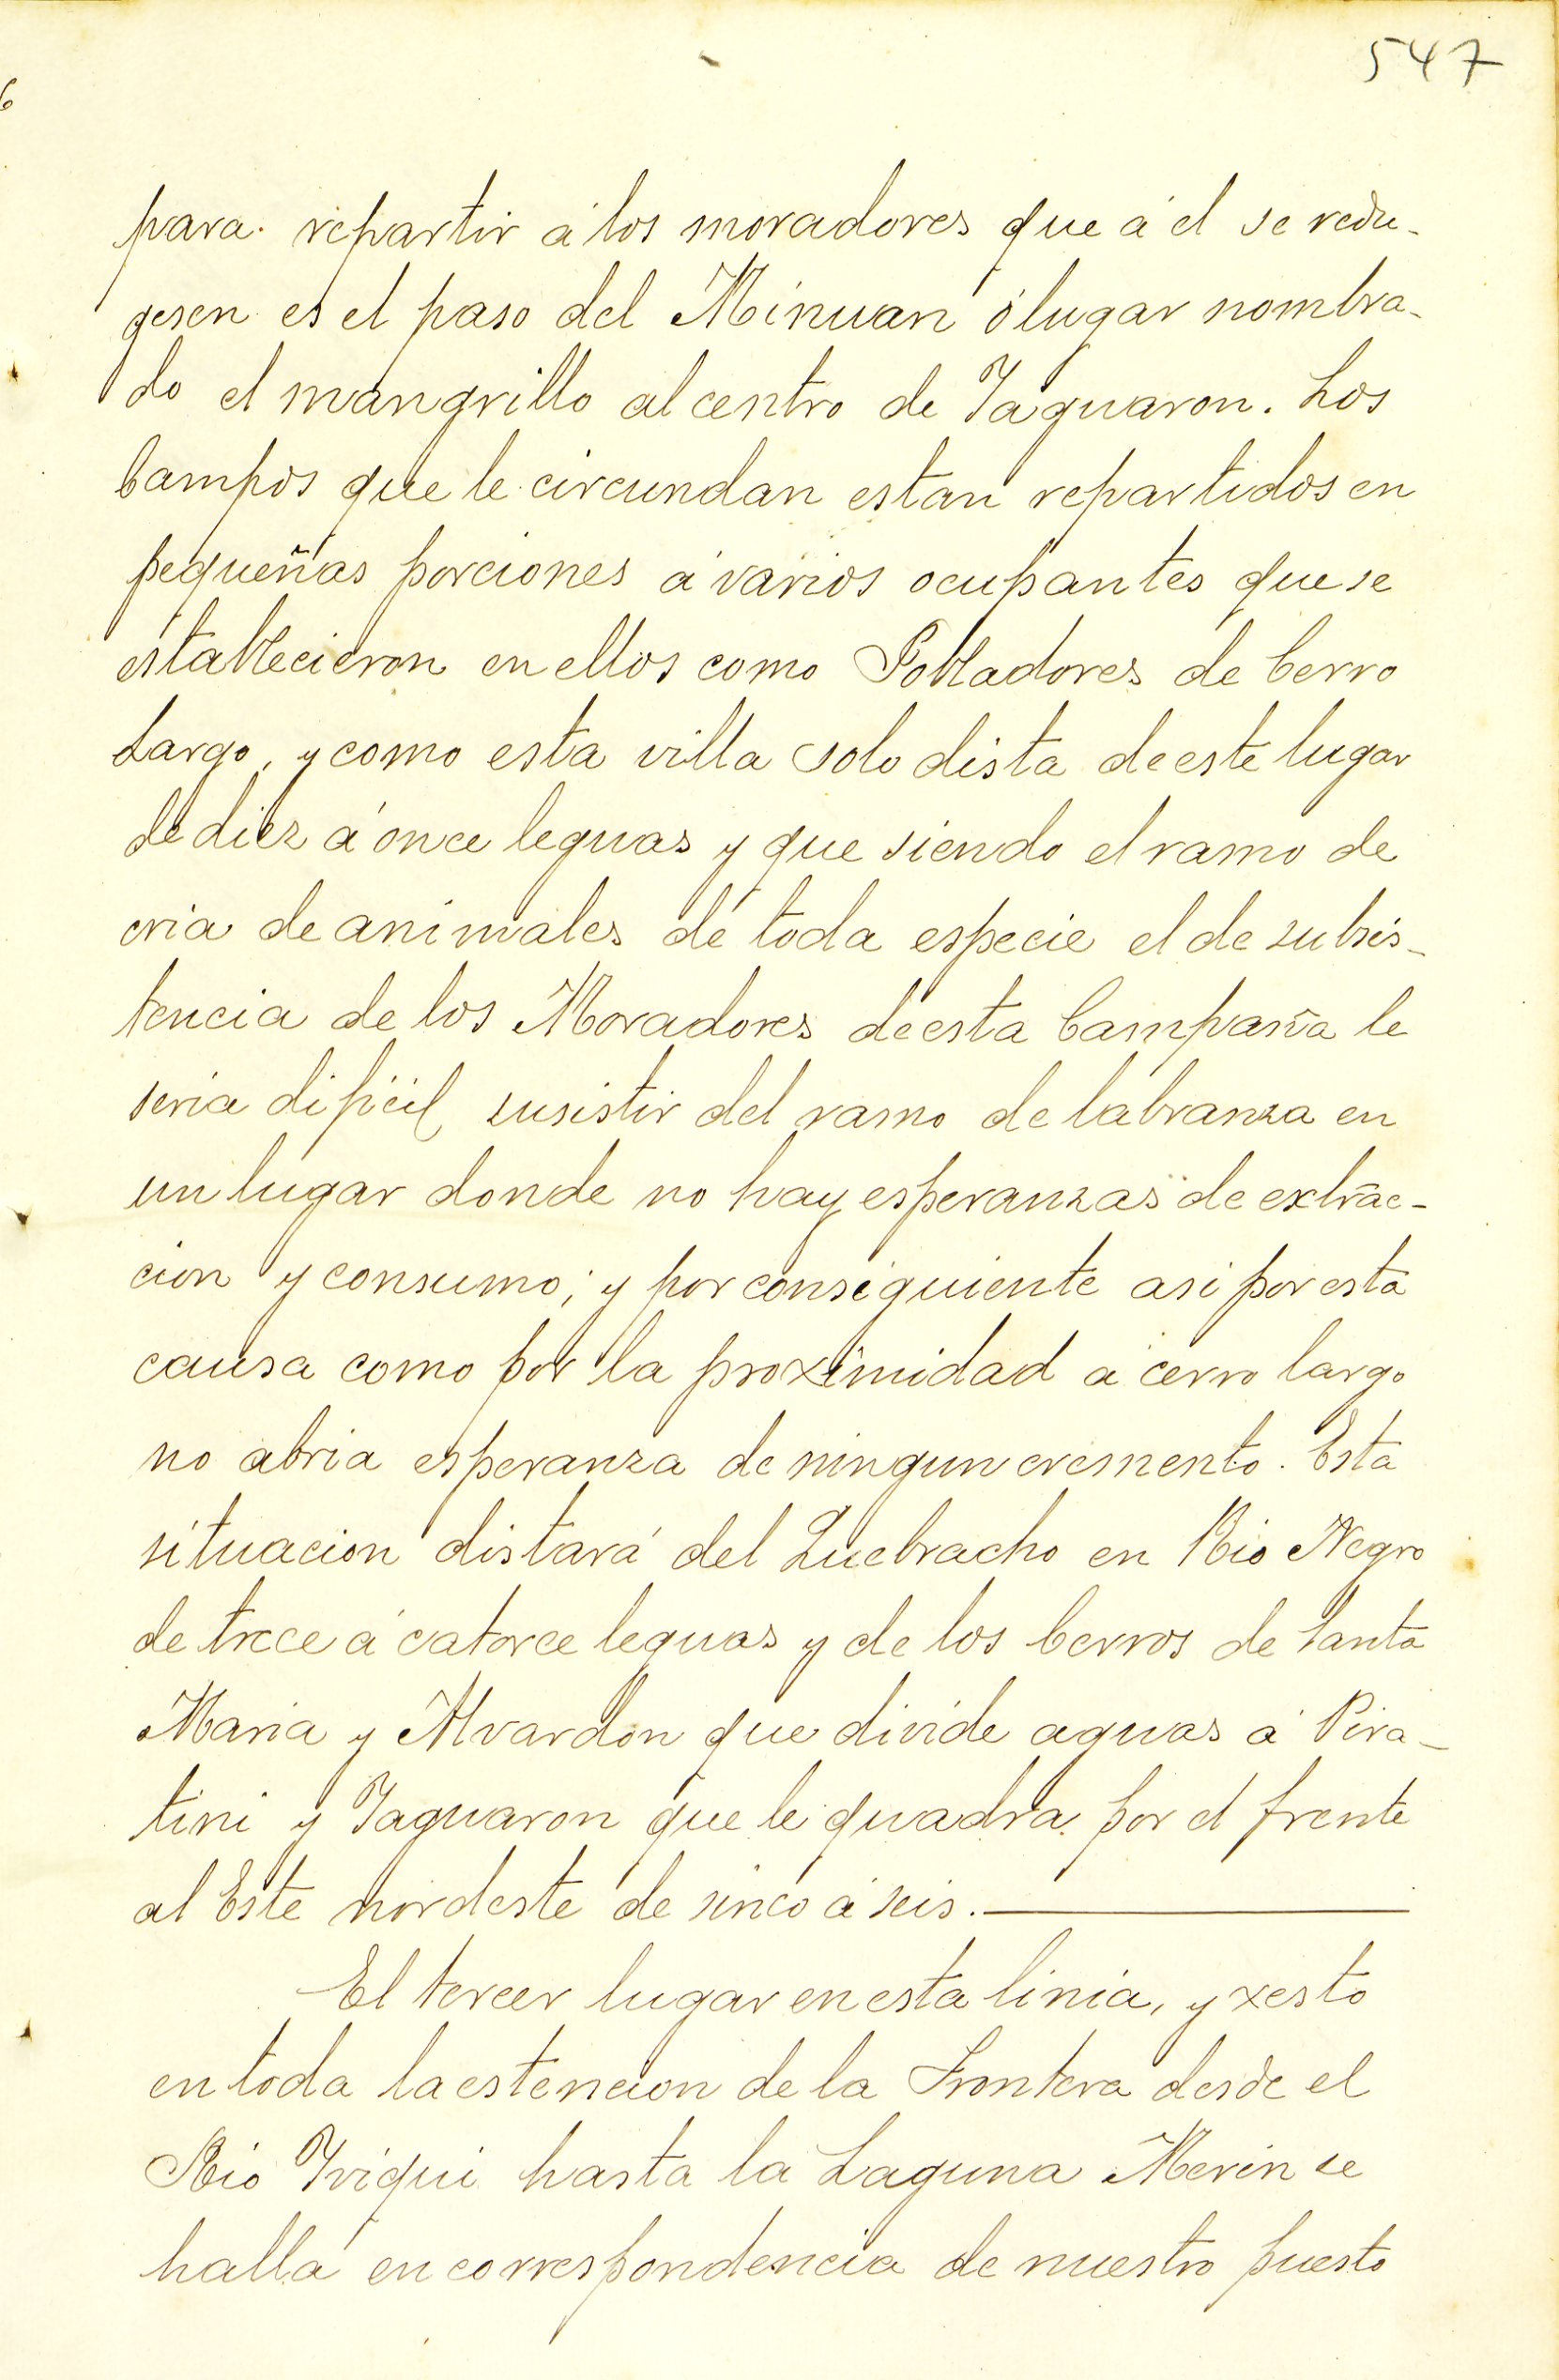 547
para. repartir á los moradores que á el se redu-
gesen es el paso del Minuan ó lugar nombra-
do el mangrillo al centro de Yaguaron. Los
Campos que le circundan estan repartidos en
pequeñas porciones á varios ocupantes que se
establecieron en ellos como Pobladores de Cerro
Largo, y como esta villa solo dista de este lugar
de diez á once leguas y que siendo el ramo de
cria de animales de toda especie el de subsis-
tencia de los Moradores de esta Campaña le
seria dificil susistir del ramo de labranza en
un lugar donde no hay esperanzas de extrac-
cion y consumo; y por consiguiente asi por esta
causa como por la proximidad a cerro largo
no abria esperanza de ningun cremento. Esta
situacion distará del Quebracho en Rio Negro
de trece á catorce leguas y de los Cerros de Santa
Maria y Alvardon que divide aguas á Pira-
tini y Yaguaron que le quadra por el frente
al Este nordeste de sinco á seis.
El tercer lugar en esta linia, y xesto
en toda la estencion de la Frontera desde el
Rio Yviqui hasta la Laguna Merin se
halla en correspondencia de nuestro puesto